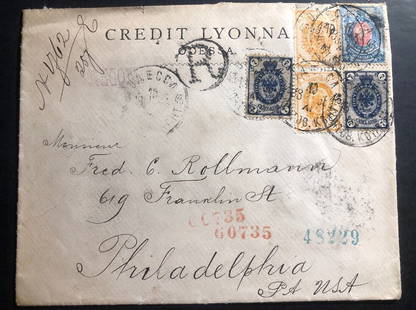 CREDIT LYONNA
ODESSA
R
ОДЕССА
Monsieur
Fred. C. Rollmann
619 Franklin St
60735
60735
48229
Philadelphia
PA USA